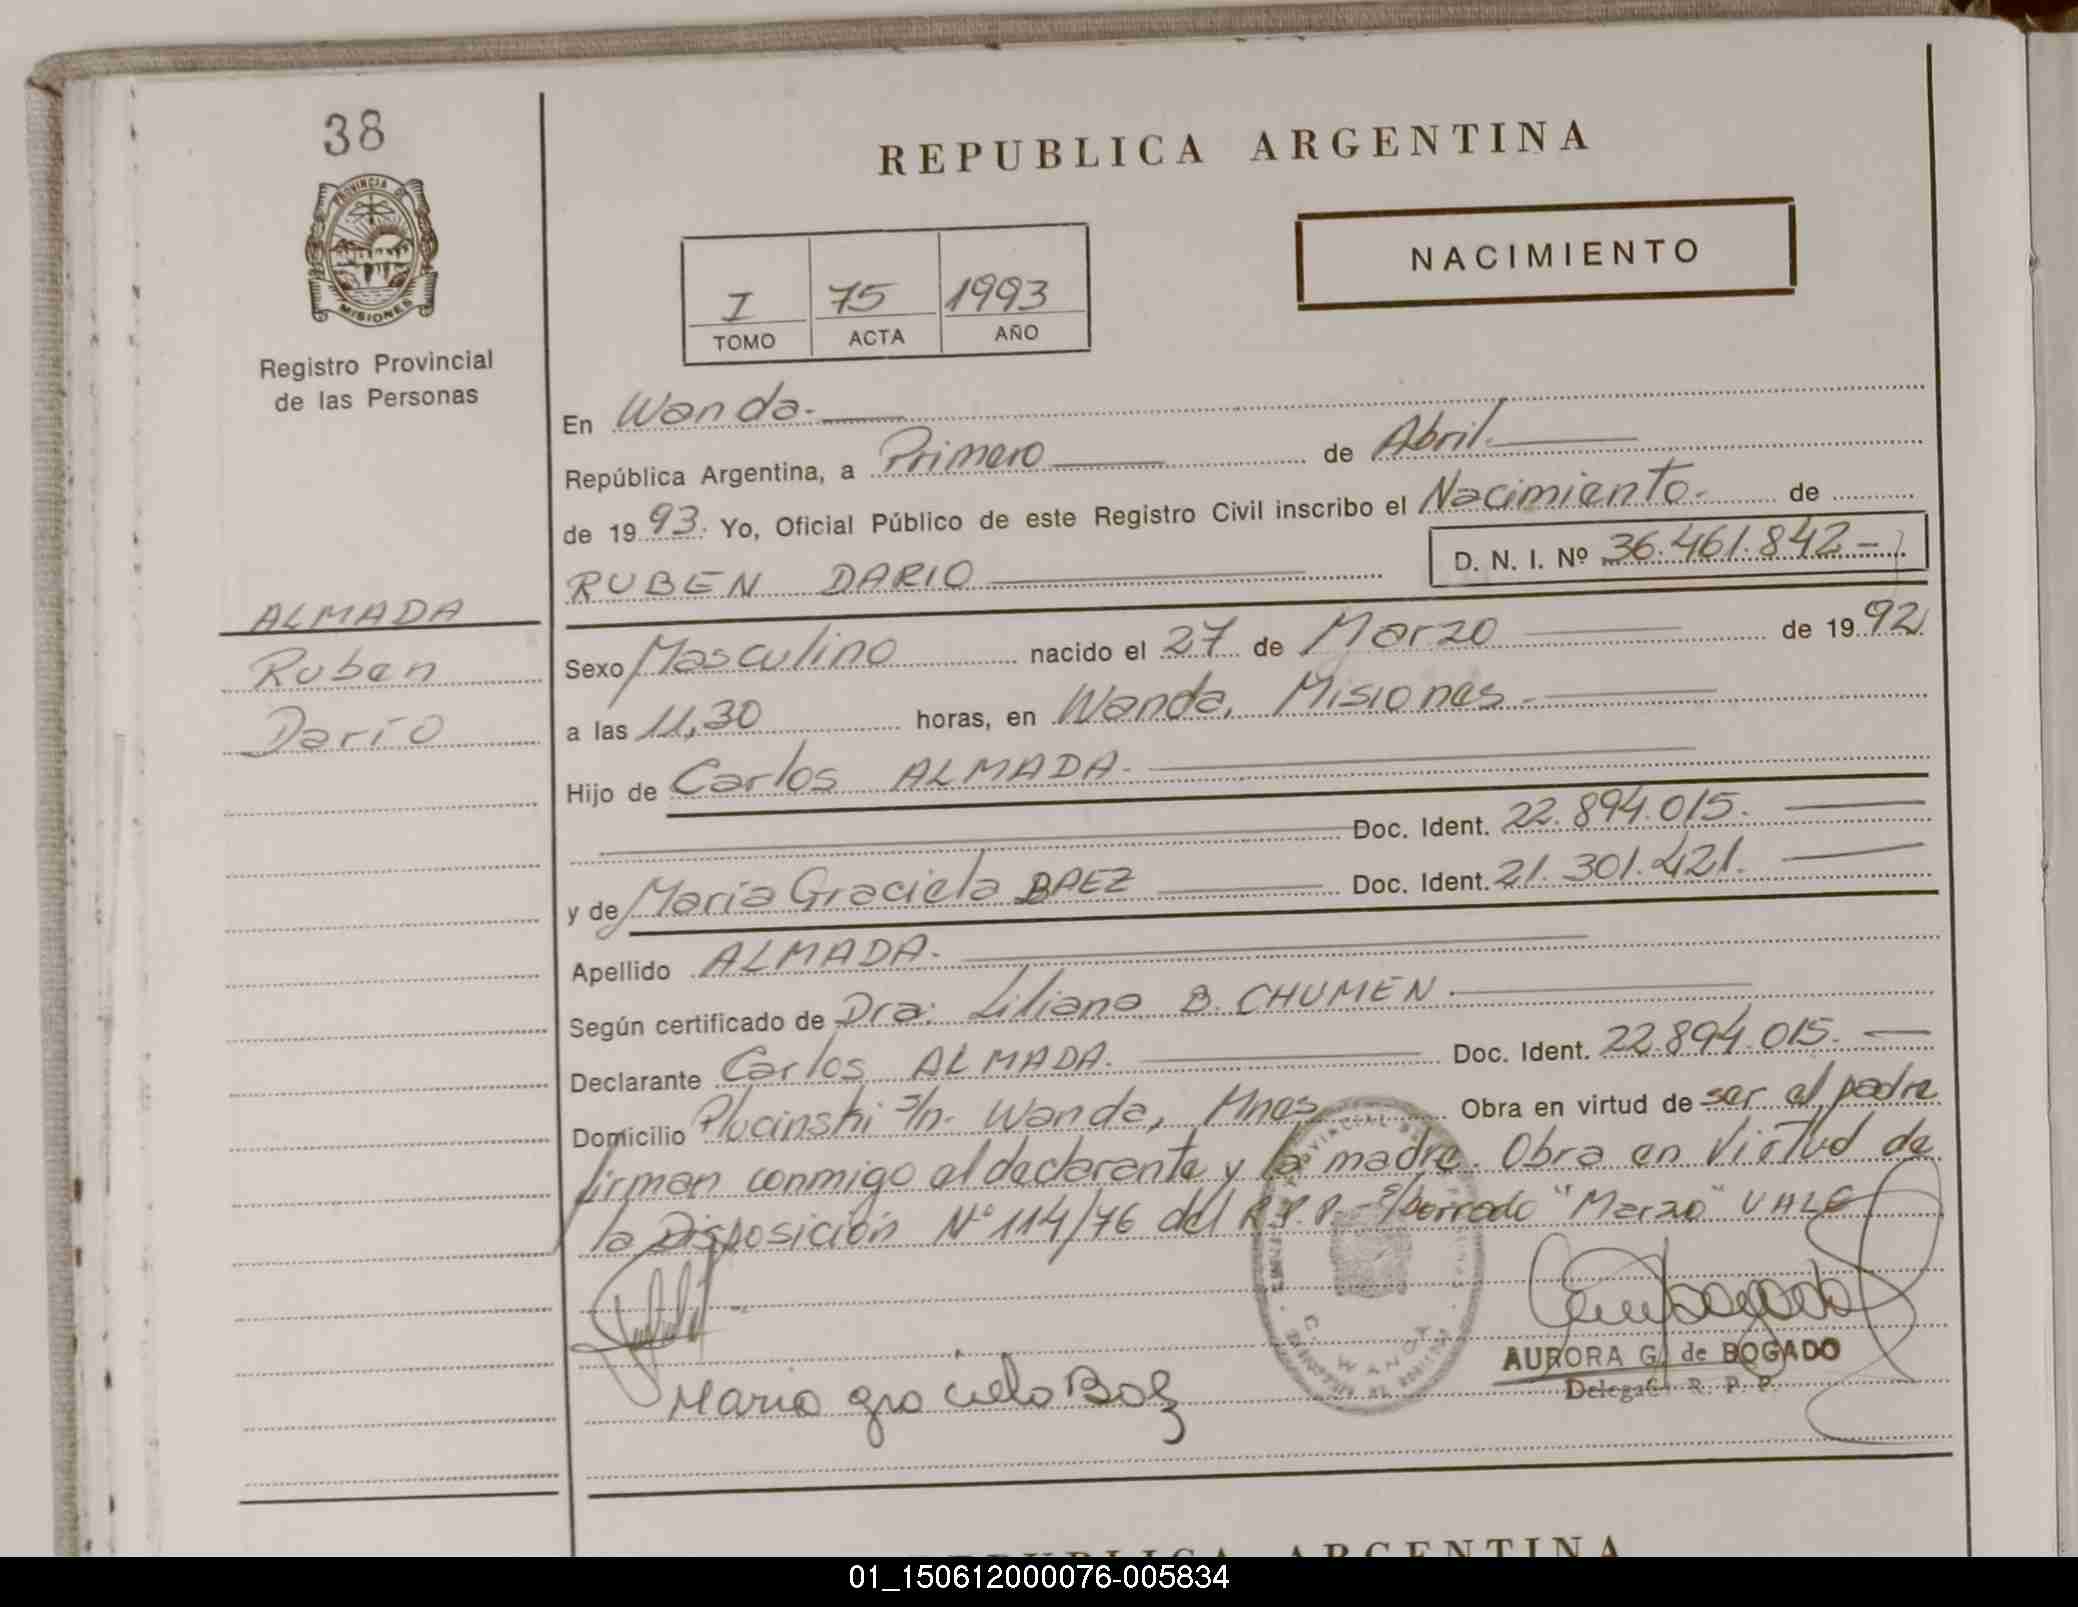 38
PROVINCIA DE
MISIONES
Registro Provincial
de las Personas
ALMADA
Ruben
Darío
REPUBLICA ARGENTINA
NACIMIENTO
I 75 1993
TOMO ACTA AÑO
En Wanda.
República Argentina, a Primero de Abril.
de 1993. Yo, Oficial Público de este Registro Civil inscribo el Nacimiento. de
RUBEN DARIO D. N. I. Nº 36.461.842-
Sexo Masculino nacido el 27 de Marzo de 1992
a las 11,30 horas, en Wanda, Misiones.
Hijo de Carlos ALMADA.
Doc. Ident. 22.894.015.
y de María Graciela BAEZ Doc. Ident. 21.301.421.
Apellido ALMADA.
Según certificado de Dra: Liliana B. CHUMEN.
Declarante Carlos ALMADA. Doc. Ident. 22.894.015.
Domicilio Plucinski s/n. Wanda, Mnes Obra en virtud de ser el padre
firman conmigo el declarante y la madre. Obra en Virtud de
la Disposición Nº 114/76 del R.P.P. s/borrado "Marzo" VALE
AURORA G. de BOGADO
Delegada R. P. P.
WANDA
Maria graciela Baez
REPUBLICA ARGENTINA
01_150612000076-005834